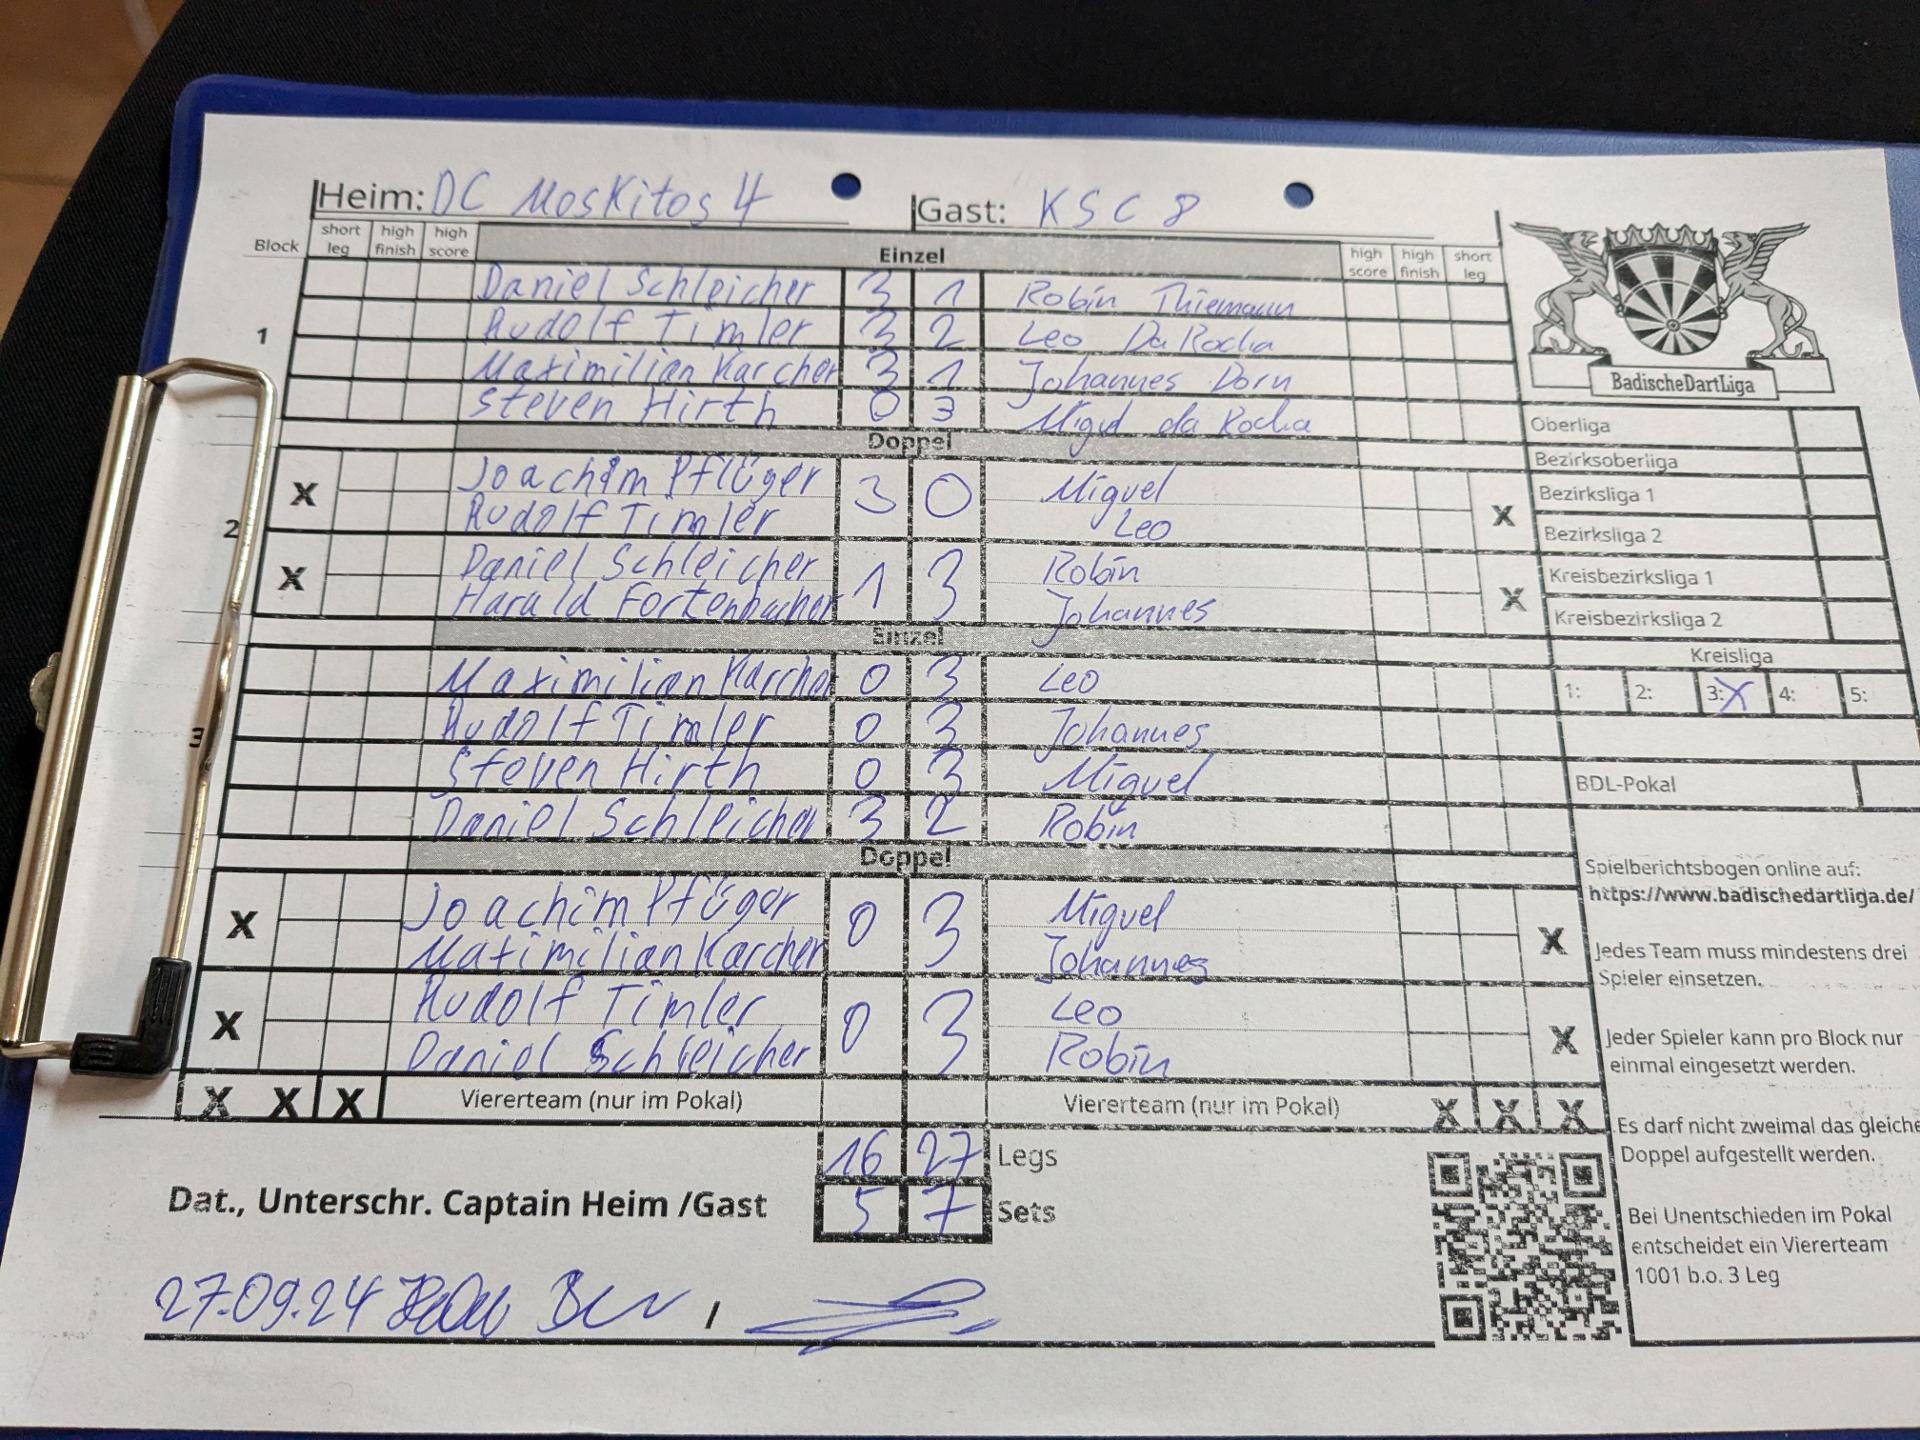 Heim: DC Moskitos 4 Gast: KSC 8
Block short leg high finish high score Einzel high score high finish short leg
1
Daniel Schleicher 3 1 Robin Thiemann
Rudolf Timler 3 2 Leo Da Rocha
Maximilian Karcher 3 1 Johannes Dorn
Steven Hirth 0 3 Miguel da Rocha
Doppel
2
X Joachim Pflüger 3 0 Miguel X
Rudolf Timler Leo
X Daniel Schleicher 1 3 Robin X
Harald Fortenbacher Johannes
Einzel
3
Maximilian Karcher 0 3 Leo
Rudolf Timler 0 3 Johannes
Steven Hirth 0 3 Miguel
Daniel Schleicher 3 2 Robin
Doppel
X Joachim Pflüger 0 3 Miguel X
Maximilian Karcher Johannes
X Rudolf Timler 0 3 Leo X
Daniel Schleicher Robin
X X X Viererteam (nur im Pokal) Viererteam (nur im Pokal) X X X
16 27 Legs
Dat., Unterschr. Captain Heim /Gast 5 7 Sets
27.09.24 /
BadischeDartLiga
Oberliga
Bezirksoberliga
Bezirksliga 1
Bezirksliga 2
Kreisbezirksliga 1
Kreisbezirksliga 2
Kreisliga
1: 2: 3: X 4: 5:
BDL-Pokal
Spielberichtsbogen online auf:
https://www.badischedartliga.de/
Jedes Team muss mindestens drei
Spieler einsetzen.
Jeder Spieler kann pro Block nur
einmal eingesetzt werden.
Es darf nicht zweimal das gleiche
Doppel aufgestellt werden.
Bei Unentschieden im Pokal
entscheidet ein Viererteam
1001 b.o. 3 Leg